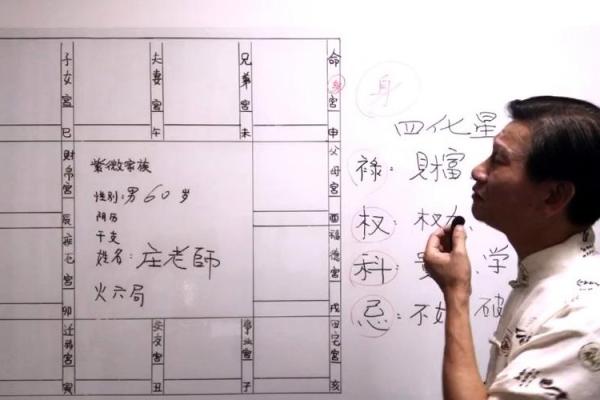 子女宮
夫妻宮
兄弟宮
命宮
身
巳
午
未
申
身
四化星
財帛宮
紫微家族
性別:男60岁
阴历
干支
姓名:庄老師
火六局
父母宮
禄:財富
辰
酉
宮
福德宮
权:权
科: 学
卯
戌
忌:不 破
迁移宮
宮
宮
田宅宮
寅
丑
子
亥